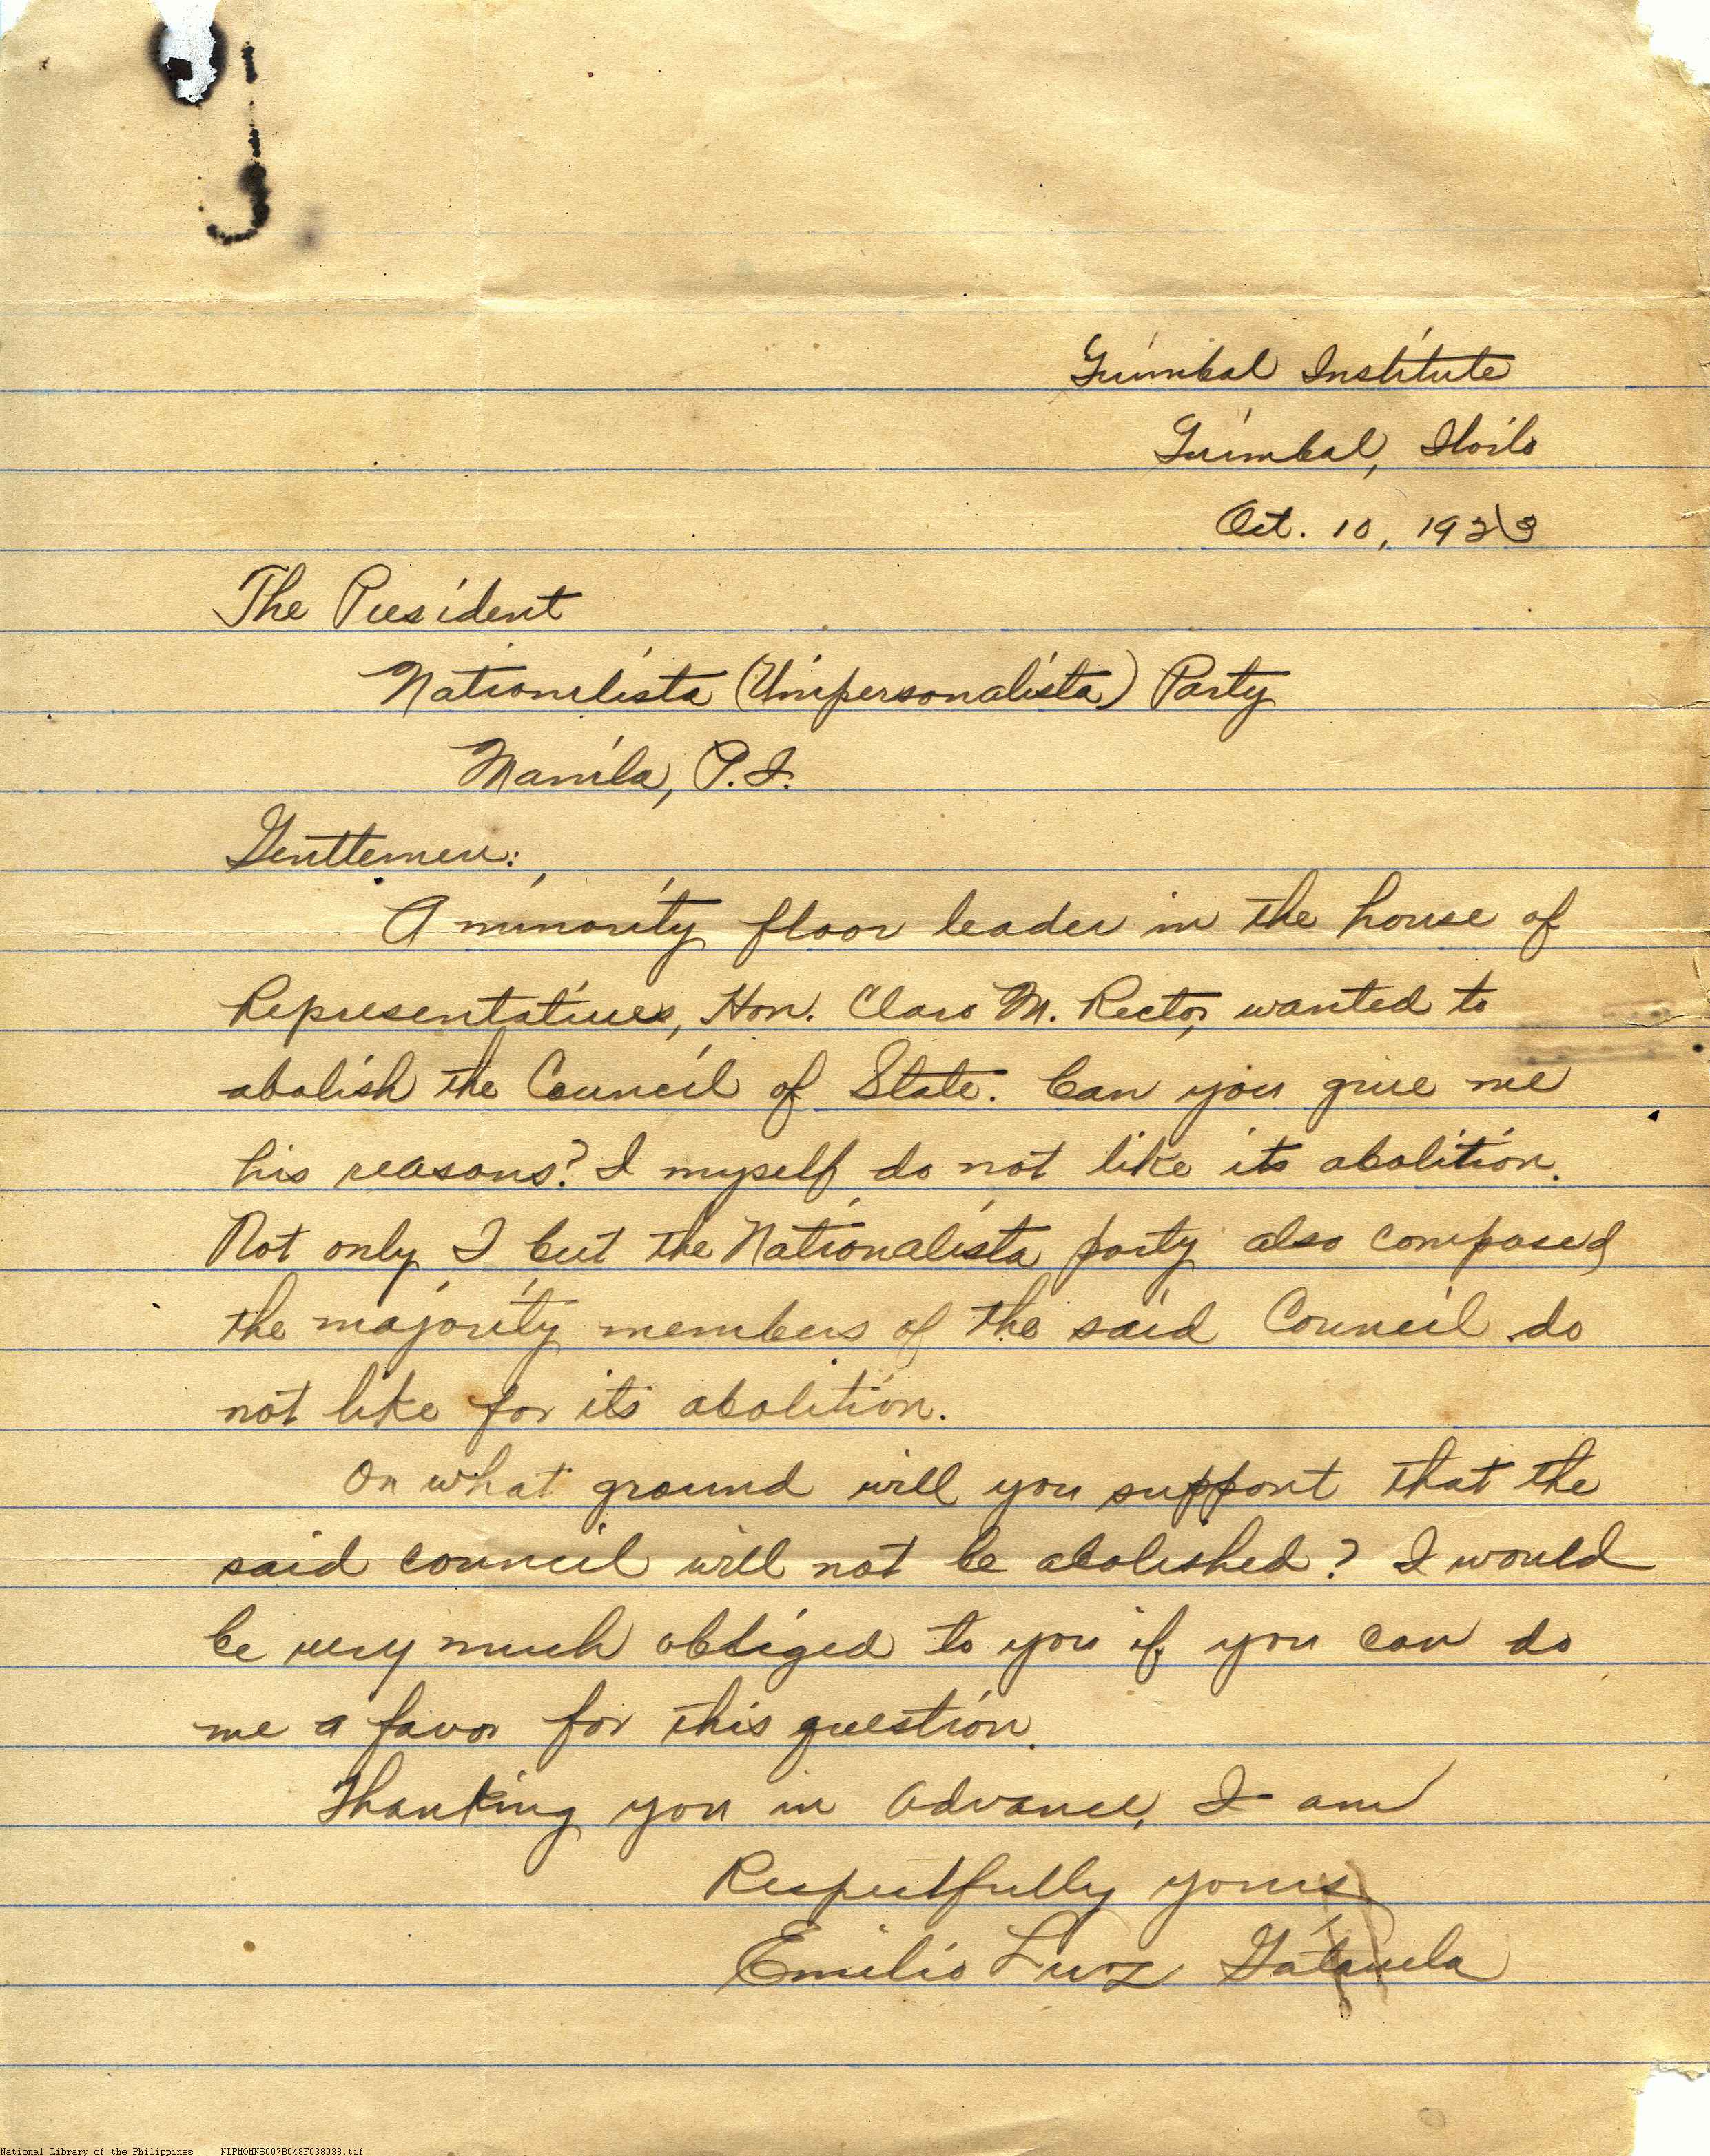 Guimbal Institute
Guimbal, Iloilo
Oct. 10, 1923
The President
Nationalista (Unipersonalista) Party
Manila, P.I.
Genttemen:
A minority floor leader in the house of
Representatives, Hon. Claro M. Recto, wanted to
abolish the Council of State. Can you give me
his reasons? I myself do not like its abolition.
Not only I but the Nationalista party also composed
the majority members of the said Council do
not like for its abolition.
On what ground will you support that the
said council will not be abolished? I would
be very much obliged to you if you can do
me a favor for this question.
Thanking you in advance, I am
Respectfully yours
Emilio Luiz
National Library of the Philippines NLPMQMNS007B048F038038.tif